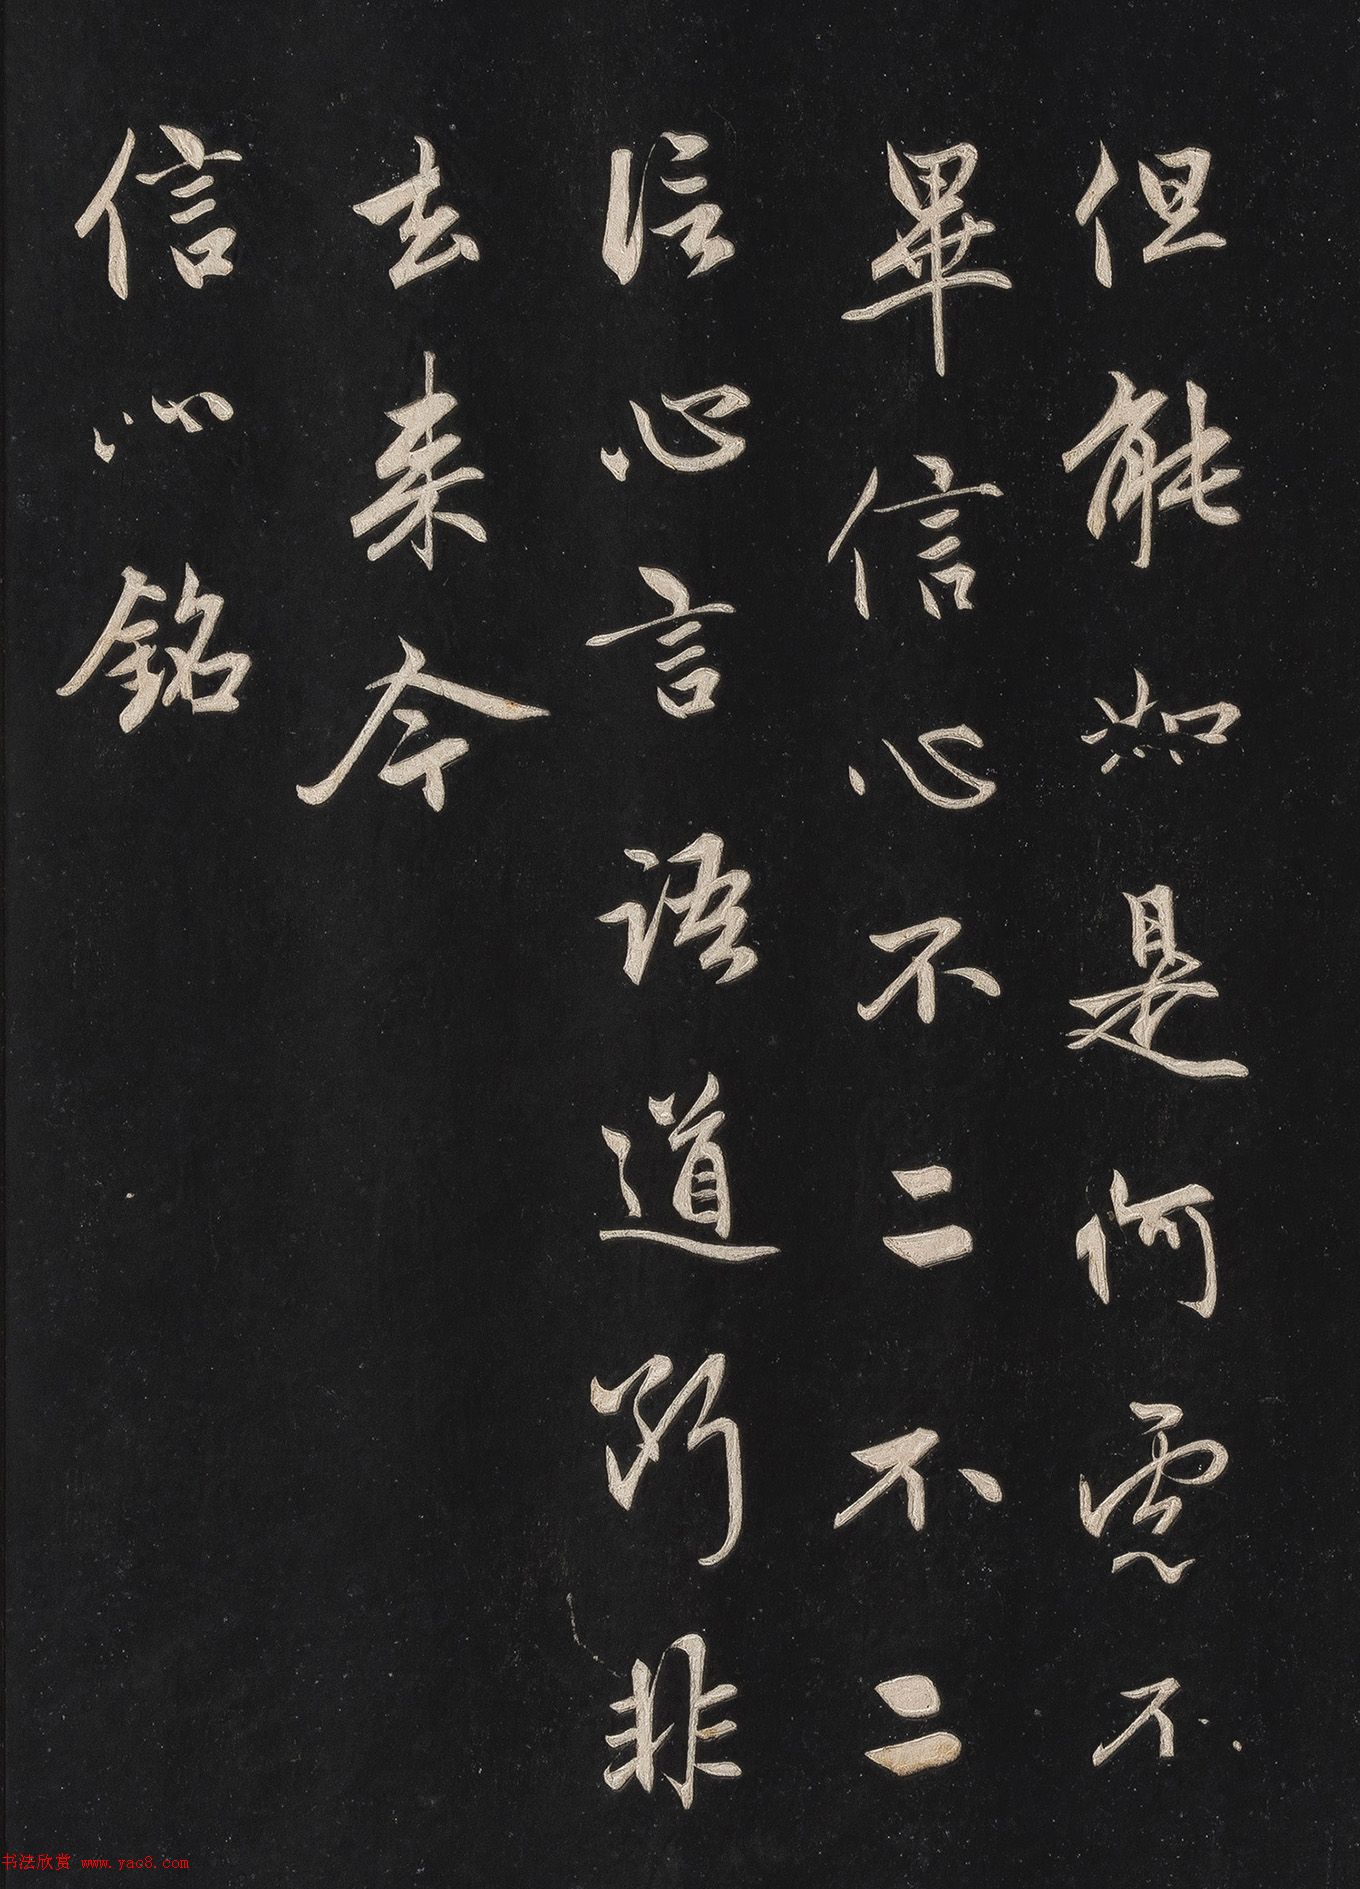 但能如是何慮不
畢信心不二不二
信心言語道斷非
去来今
信心銘
书法欣赏 www.yac8.com